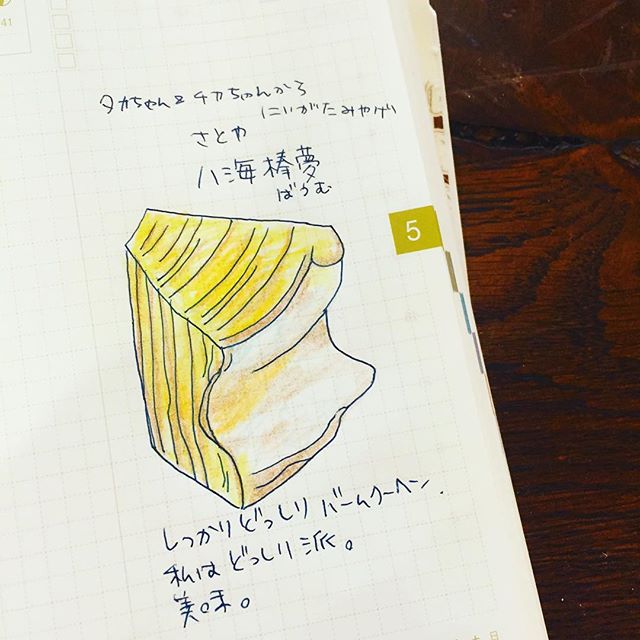 41
タカちゃん&チカちゃんから
にいがたみやげ
さとや
八海棒夢
ばうむ
5
しっかりどっしりバームクーヘン.
私はどっしり派。
美味。